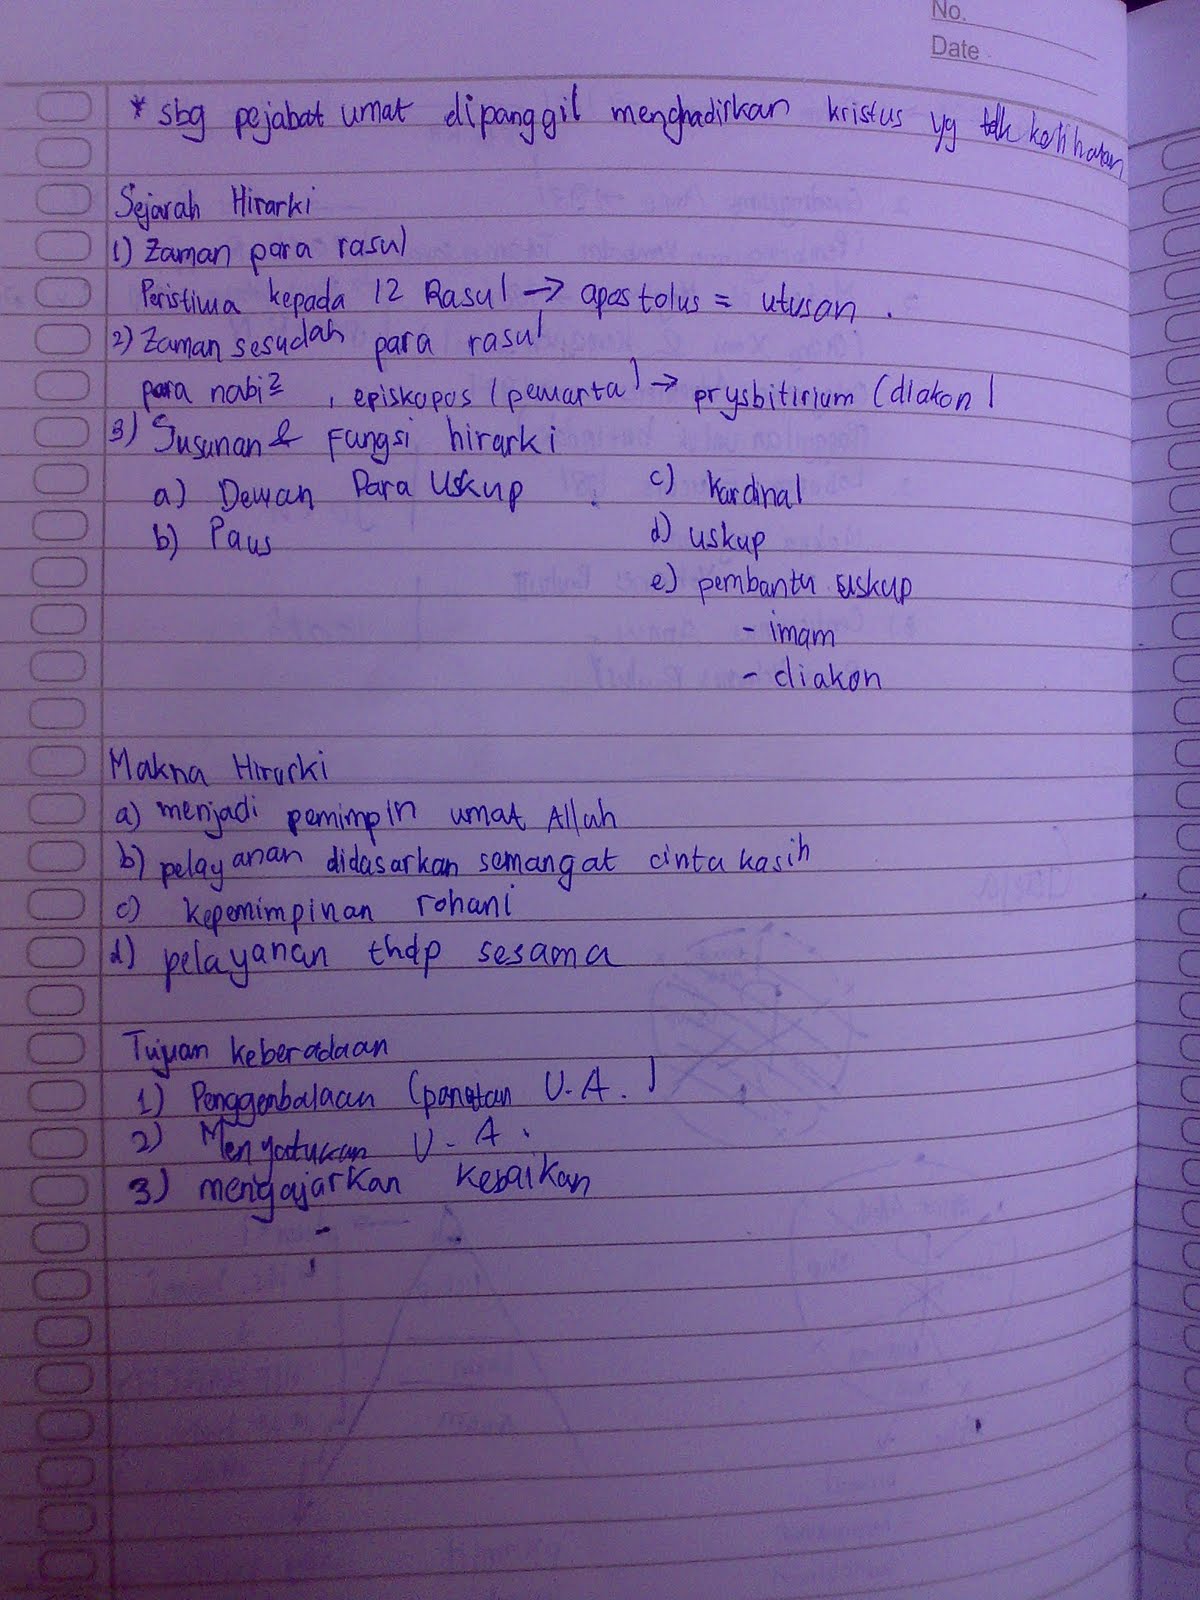 No.
Date
* sbg pejabat umat dipanggil menghadirkan kristus yg tdk kelihatan
Sejarah Hirarki
1) Zaman para rasul
Peristiwa kepada 12 Rasul → apostolus = utusan .
2) Zaman sesudah para rasul
para nabi2 , episkopos (pewarta) → prysbitirium (diakon)
3) Susunan & Fungsi hirarki
a) Dewan Para Uskup
b) Paus
c) Kardinal
d) uskup
e) pembantu uskup
- imam
- diakon
Makna Hirarki
a) menjadi pemimpin umat Allah
b) pelayanan didasarkan semangat cinta kasih
c) kepemimpinan rohani
d) pelayanan thdp sesama
Tujuan keberadaan
1) Penggembalaan ( U.A. )
2) Menyatukan U.A.
3) mengajarkan kebaikan